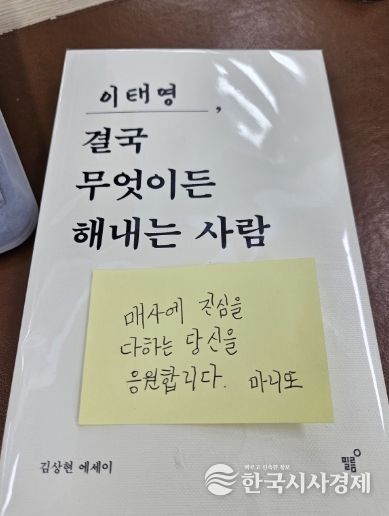 이태영,
결국
무엇이든
해내는 사람
매사에 진심을
다하는 당신을
응원합니다. 마니또
김상현 에세이
필름
빠르고 진솔한 정보
한국시사경제